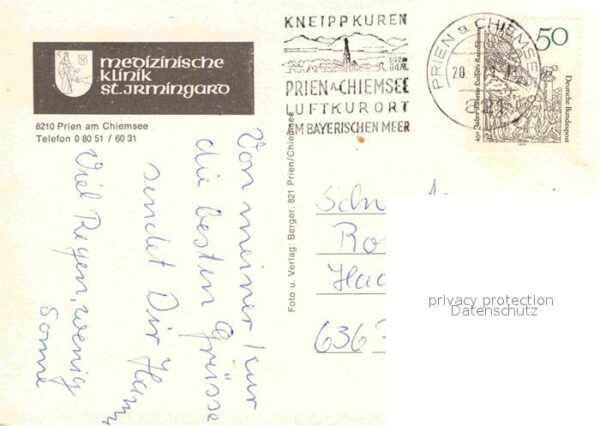 medizinische
klinik
st. irmingard
8210 Prien am Chiemsee
Telefon 0 80 51 / 60 31
KNEIPPKUREN
PRIEN A. CHIEMSEE
LUFTKURORT
AM BAYERISCHEN MEER
PRIEN a. CHIEMSEE
20
50
Deutsche Bundespost
Von meiner Kur
die besten Grüsse
sendet Dir
Viel Regen, wenig
Sonne
Foto u. Verlag: Berger, 821 Prien/Chiemsee
6367
privacy protection
Datenschutz